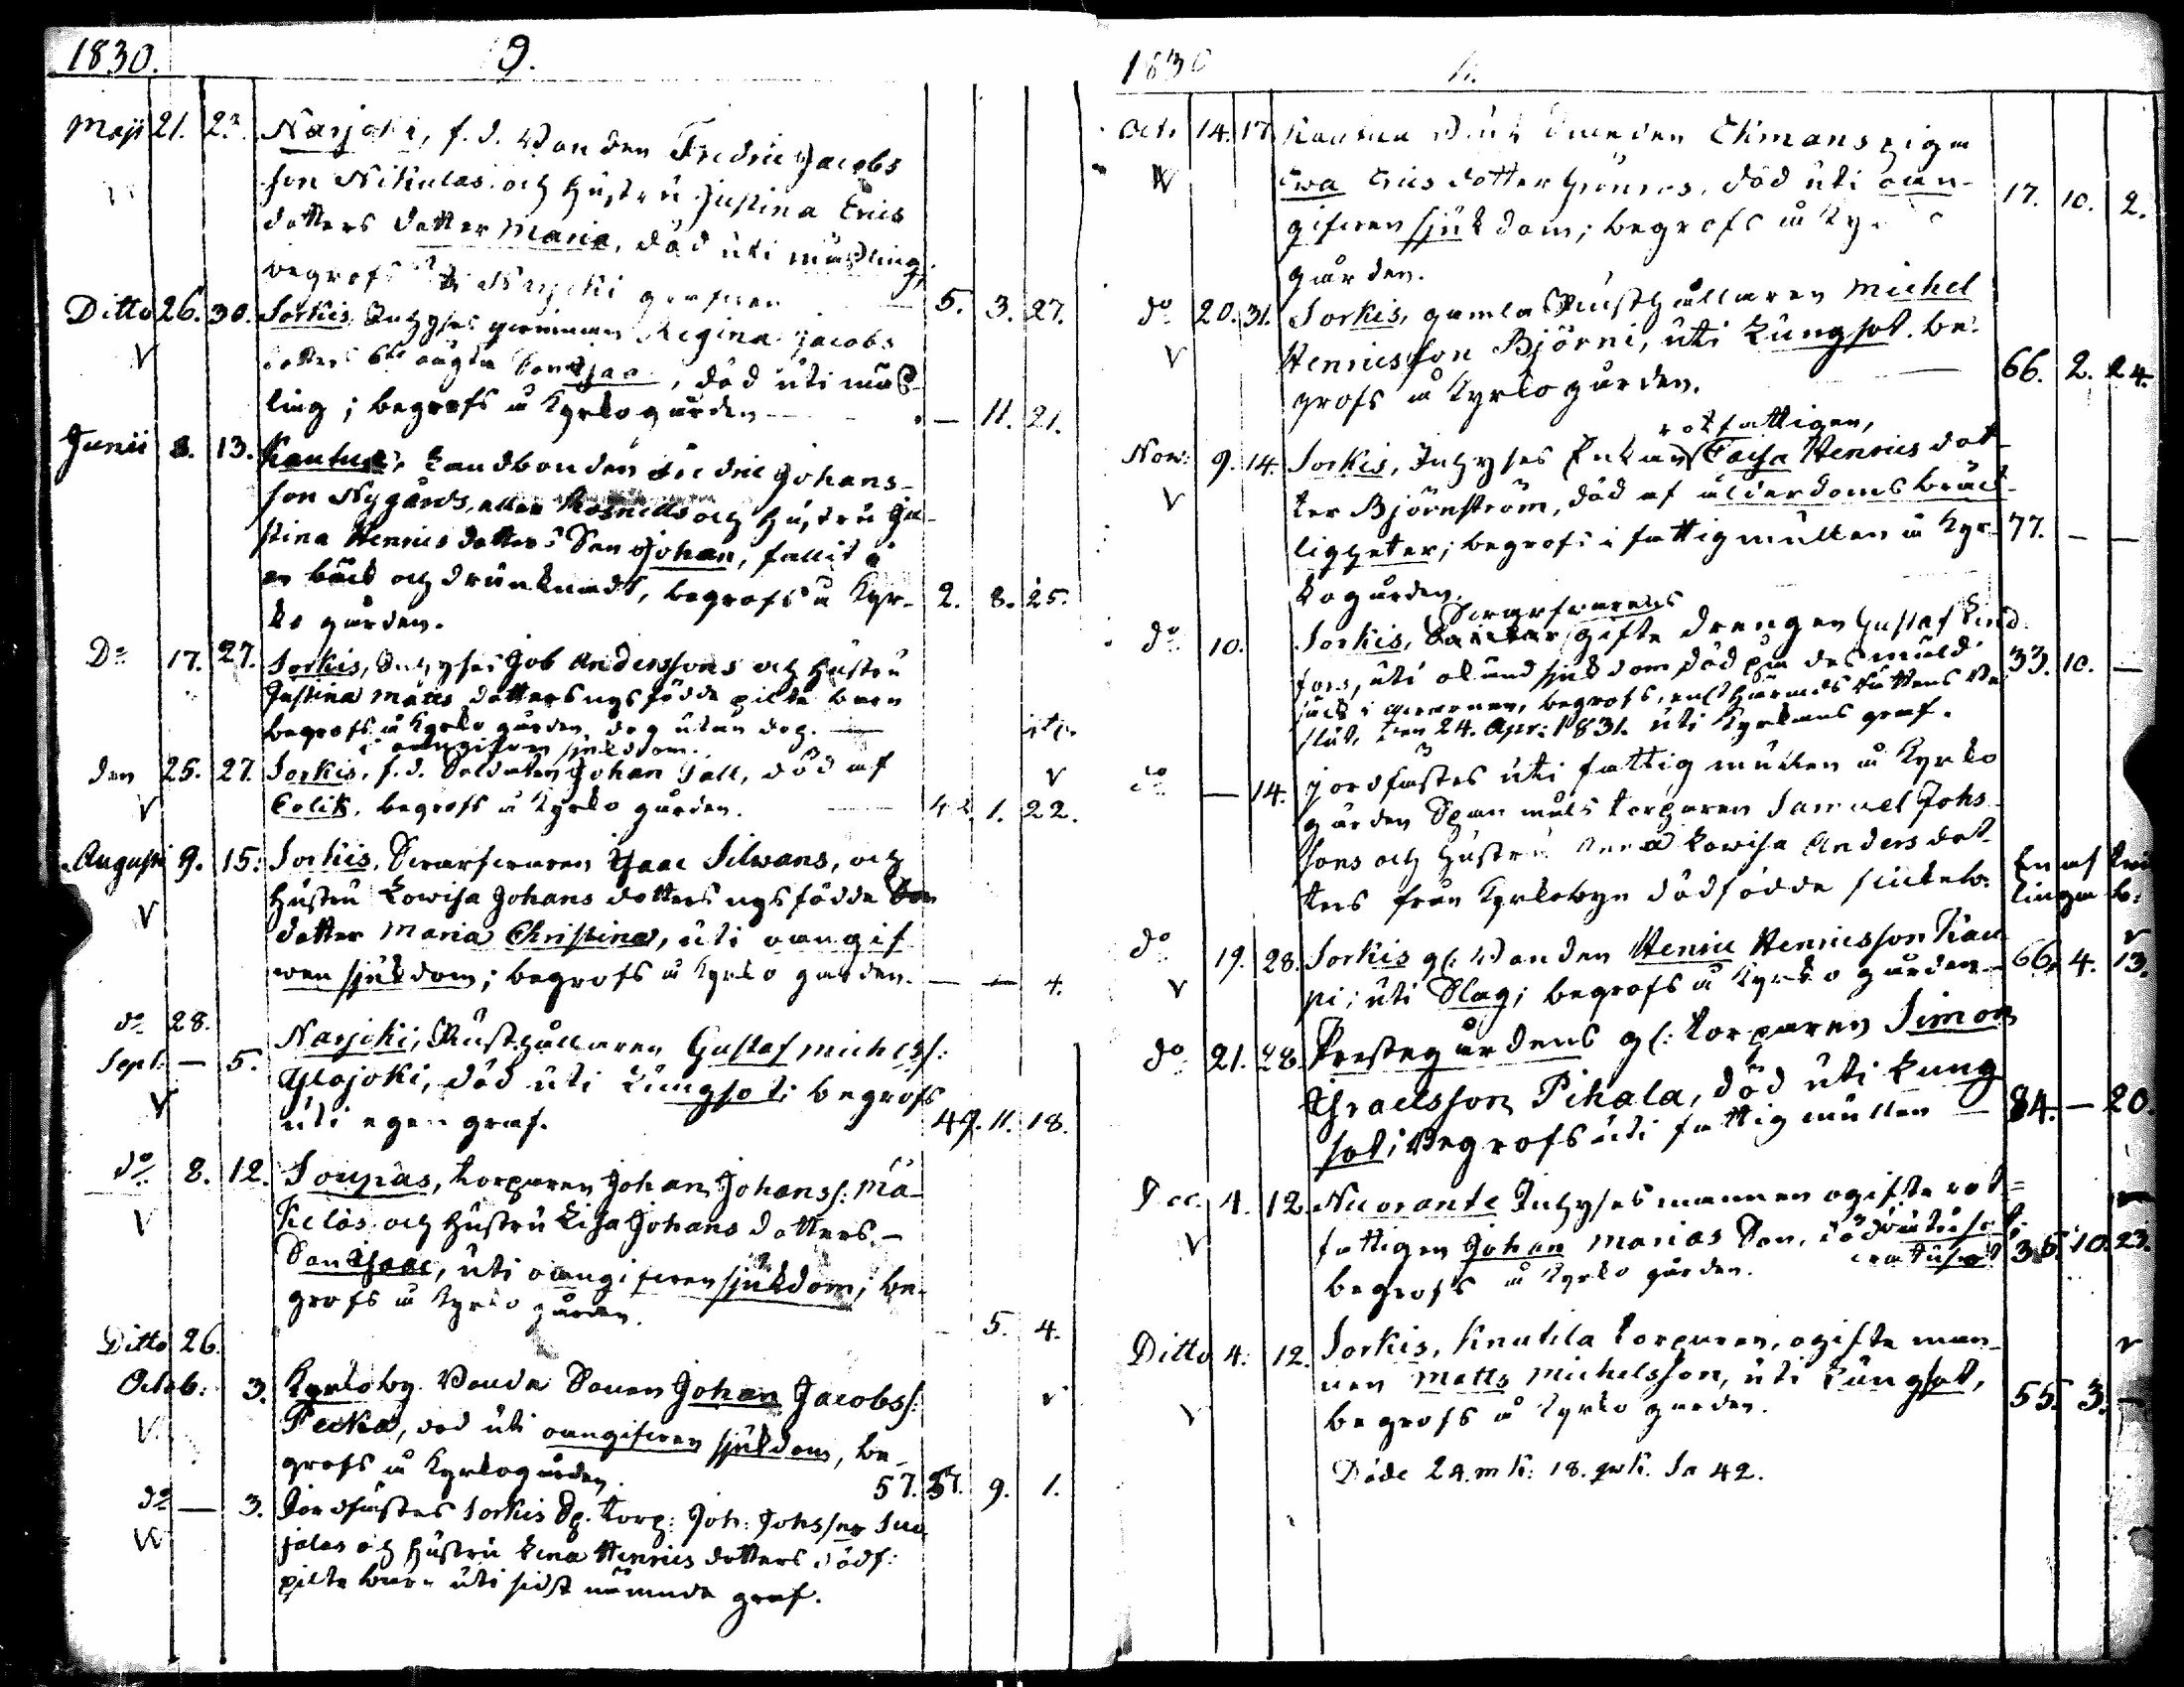 1830. 9.
Maji 21. Narjoki, f. d. Bonden Fredric Jacobs
son Nikulas och Hustru Justina Erics
dotters dotter Maria, död uti mässling;
begrofs Narjoki grafven 5. 3. 27.
Ditto 26. 30. Sorkis, Inhyses qvinnan Regina Jacobs
dotters oägta Son Isaac, död uti mäss-
ling; begrofs å Kyrkogården — 11. 21.
Junii 8. 13. Kautus, Landbonden Fredric Johans-
son Nygårds, eller och Hustru Ju-
stina Henrics dotters Son Johan, fallit i
en bäck och drunknadt, begrofs å Kyr- 2. 8. 25.
ko gården.
Do 17. 27. Sorkis, Inhyses Job Anderssons och Hustru
Justina Matts dotters nyfödde pilte barn
begrofs å Kyrko gården, dog utan dop.
i oangifven sjukdom.
den 25. 27. Sorkis, f. d. Soldaten Johan Fall, död af
Colik, begrofs å Kyrko gården. 1. 22.
Augusti 9. 15. Sorkis, Svarfvaren Isaac Silwans, och
Hustru Lowisa Johans dotters nyfödde Son
dotter Maria Christina, uti oangif
wen sjukdom; begrofs å Kyrko gården. — — 4.
do 28.
Sept. — 5. Narjoki, Rusthållaren Gustaf Michelss:
Ylojoki, död uti Lungsot; begrofs
uti egen graf. 49. 11. 18.
do 8. 12. Soupas, torparen Johan Johanss: Mä-
keläs och Hustru Lisa Johans dotters
Son Isaac, uti oangifven sjukdom; be-
grofs å Kyrko gården. — 5. 4.
Ditto 26.
Octob: 3. Kyrkoby Bonde Sonen Johan Jacobss:
Pecka, död uti oangifven sjukdom, be-
grofs å Kyrkogården. 57. 57. 9. 1.
do — 3. Jordfästes Sorkis Sp. torp: Joh: Johssons Suo
jalas och Hustru Lena Henrics dotters dödf:
pilte barn uti sidst nämnde graf.
1830
Oct. 14. 17. Kautua Ekmans piga
Ewa Erics dotter Grönroos, död uti oan-
gifven sjukdom; begrofs å Kyrko 17. 10. 2.
gården.
do 20. 31. Sorkis, gamla Rusthållaren Michel
Henricsson Björni, uti Lungsot. be-
grofs å Kyrkogården. 66. 2. 24.
rotfattigen,
Nov: 9. 14. Sorkis, Inhyses Enkan Caisa Henrics dot-
ter Björnström, död af ålderdoms bräck-
ligheter; begrofs i fattigmullen å Kyr- 77. — —
kogården.
Svarfvarens
do 10. Sorkis, gifte drengen Gustaf Lind
fors, uti okänd sjukdom död på des
33. 10. —
begrofs, enl: Härads Rättens
slut, den 24. Apr: 1831. uti Kyrkans graf.
do — 14. Jordfästes uti fattig mullen å Kyrko
gården Spanmåls torparen Samuel Johs-
sons och Hustru Lowisa Anders dot-
ters från Kyrkobyn dödfödde flickeb:
En af tvil
lingar b:
do 19. 28. Sorkis gl: Bonden Henric Henricsson Kau
pi; uti Slag; begrofs å Kyrko gården 66. 4. 13.
do 21. 28. Prestegårdens gl: torparen Simon
Israelsson Pihala, död uti Lung
sot; Begrofs uti fattig mullen — 84. — 20.
Dec. 4. 12. Nuorante Inhyses mannen ogifte rot-
fattigen Johan Marias Son, död
begrofs å Kyrko gården. 35. 10. 23.
Ditto 4. 12. Sorkis, Knutila torparen, ogifte man-
nen Matts Michelsson, uti Lungsot,
begrofs å Kyrko gården. 55. 3. —
Döde 24. mk: 18. qvk. Sa 42.